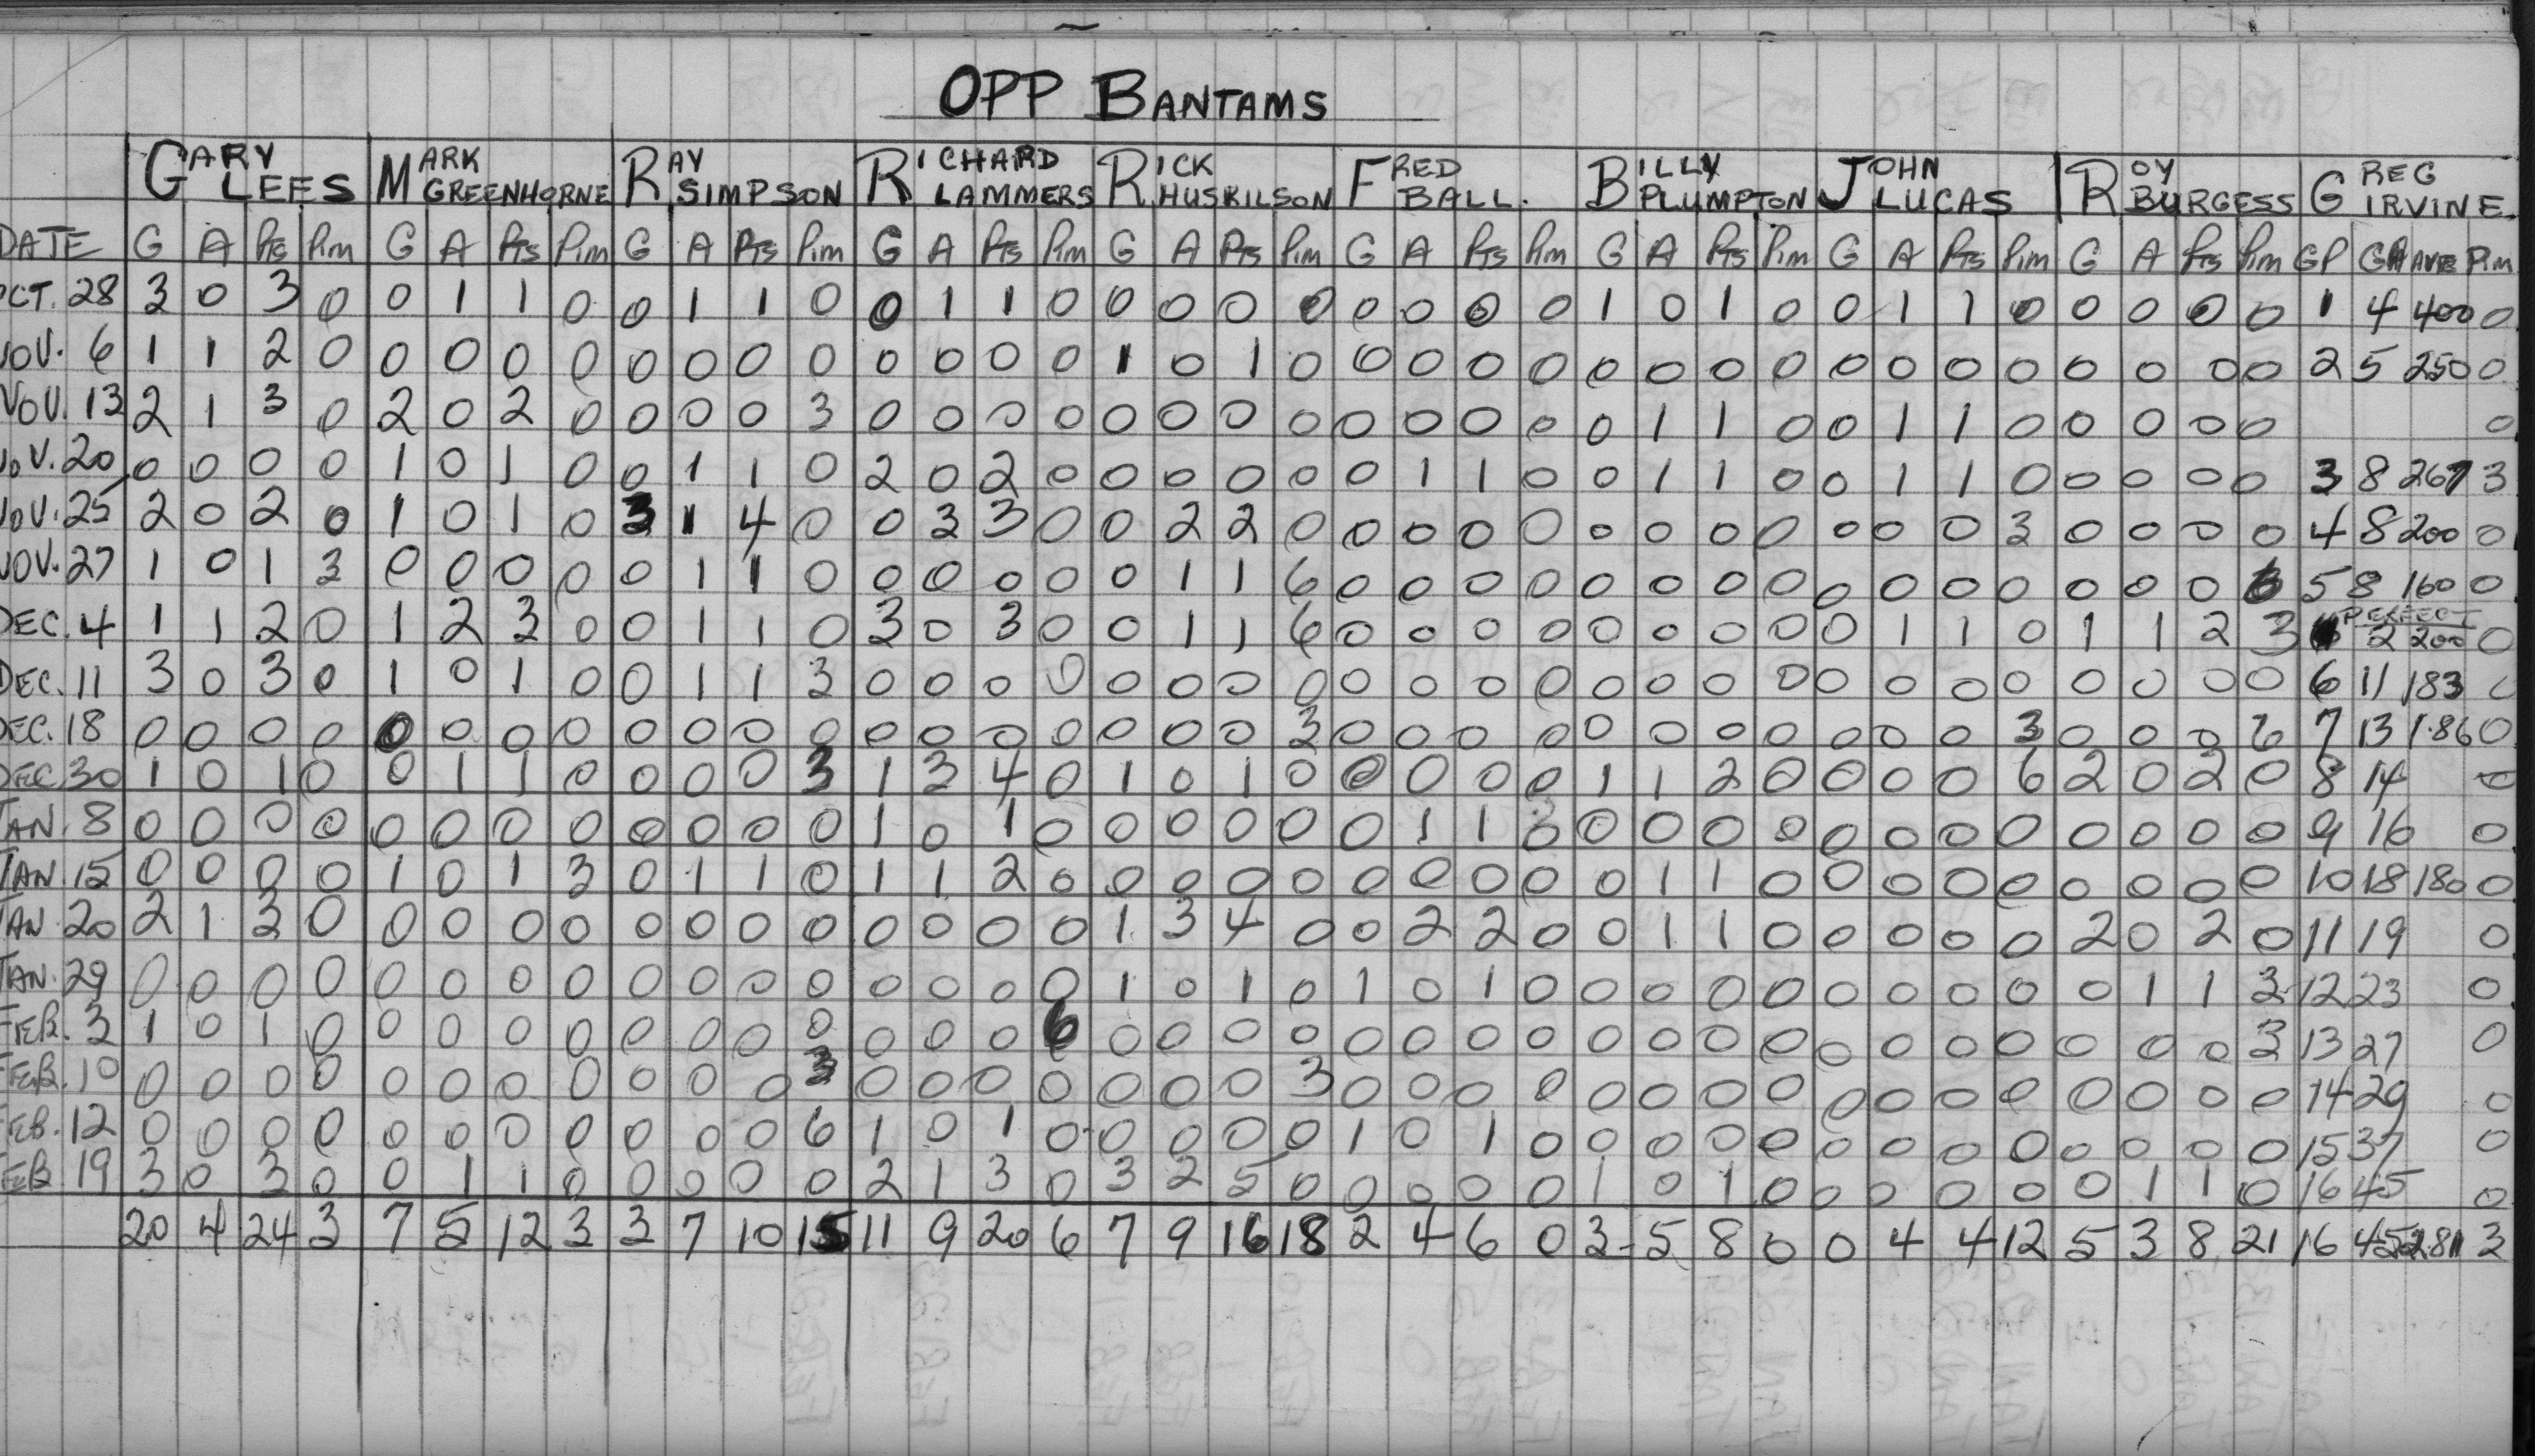 OPP BANTAMS
GARY LEES MARK GREENHORNE RAY SIMPSON RICHARD LAMMERS RICK HUSKILSON FRED BALL. BILLY PLUMPTON JOHN LUCAS ROY BURGESS GREG IRVINE
DATE G A Pts Pim G A Pts Pim G A Pts Pim G A Pts Pim G A Pts Pim G A Pts Pim G A Pts Pim G A Pts Pim G A Pts Pim GP GA AVE Pim
OCT. 28 3 0 3 0 0 1 1 0 0 1 1 0 0 1 1 0 0 0 0 0 0 0 0 0 1 0 1 0 0 1 1 0 0 0 0 0 1 4 400 0
NOV. 6 1 1 2 0 0 0 0 0 0 0 0 0 0 0 0 0 1 0 1 0 0 0 0 0 0 0 0 0 0 0 0 0 0 0 0 0 2 5 250 0
NOV. 13 2 1 3 0 2 0 2 0 0 0 0 3 0 0 0 0 0 0 0 0 0 0 0 0 0 1 1 0 0 1 1 0 0 0 0 0 0
NOV. 20 0 0 0 0 1 0 1 0 0 1 1 0 2 0 2 0 0 0 0 0 0 1 1 0 0 1 1 0 0 1 1 0 0 0 0 0 3 8 267 3
NOV. 25 2 0 2 0 1 0 1 0 3 1 4 0 0 3 3 0 0 2 2 0 0 0 0 0 0 0 0 0 0 0 0 3 0 0 0 0 4 8 200 0
NOV. 27 1 0 1 3 0 0 0 0 0 1 1 0 0 0 0 0 0 1 1 6 0 0 0 0 0 0 0 0 0 0 0 0 0 0 0 6 5 8 160 0
DEC. 4 1 1 2 0 1 2 3 0 0 1 1 0 3 0 3 0 0 1 1 6 0 0 0 0 0 0 0 0 0 1 1 0 1 1 2 3 PERFECT 2 200 0
DEC. 11 3 0 3 0 1 0 1 0 0 1 1 3 0 0 0 0 0 0 0 0 0 0 0 0 0 0 0 0 0 0 0 0 0 0 0 0 6 11 183 0
DEC. 18 0 0 0 0 0 0 0 0 0 0 0 0 0 0 0 0 0 0 0 3 0 0 0 0 0 0 0 0 0 0 0 3 0 0 0 6 7 13 1.86 0
DEC. 30 1 0 1 0 0 1 1 0 0 0 0 3 1 3 4 0 1 0 1 0 0 0 0 0 1 1 2 0 0 0 0 6 2 0 2 0 8 14 0
JAN. 8 0 0 0 0 0 0 0 0 0 0 0 0 1 0 1 0 0 0 0 0 0 1 1 0 0 0 0 0 0 0 0 0 0 0 0 0 9 16 0
JAN. 15 0 0 0 0 1 0 1 3 0 1 1 0 1 1 2 0 0 0 0 0 0 0 0 0 0 1 1 0 0 0 0 0 0 0 0 0 10 18 180 0
JAN. 20 2 1 3 0 0 0 0 0 0 0 0 0 0 0 0 0 1 3 4 0 0 2 2 0 0 1 1 0 0 0 0 0 2 0 2 0 11 19 0
JAN. 29 0 0 0 0 0 0 0 0 0 0 0 0 0 0 0 0 1 0 1 0 1 0 1 0 0 0 0 0 0 0 0 0 0 1 1 3 12 23 0
FEB. 3 1 0 1 0 0 0 0 0 0 0 0 0 0 0 0 6 0 0 0 0 0 0 0 0 0 0 0 0 0 0 0 0 0 0 0 3 13 27 0
FEB. 10 0 0 0 0 0 0 0 0 0 0 0 3 0 0 0 0 0 0 0 3 0 0 0 0 0 0 0 0 0 0 0 0 0 0 0 0 14 29 0
FEB. 12 0 0 0 0 0 0 0 0 0 0 0 6 1 0 1 0 0 0 0 0 1 0 1 0 0 0 0 0 0 0 0 0 0 0 0 0 15 37 0
FEB 19 3 0 3 0 0 1 1 0 0 0 0 0 2 1 3 0 3 2 5 0 0 0 0 0 1 0 1 0 0 0 0 0 0 1 1 0 16 45 0
20 4 24 3 7 5 12 3 3 7 10 15 11 9 20 6 7 9 16 18 2 4 6 0 3 5 8 0 0 4 4 12 5 3 8 21 16 45 2.81 3